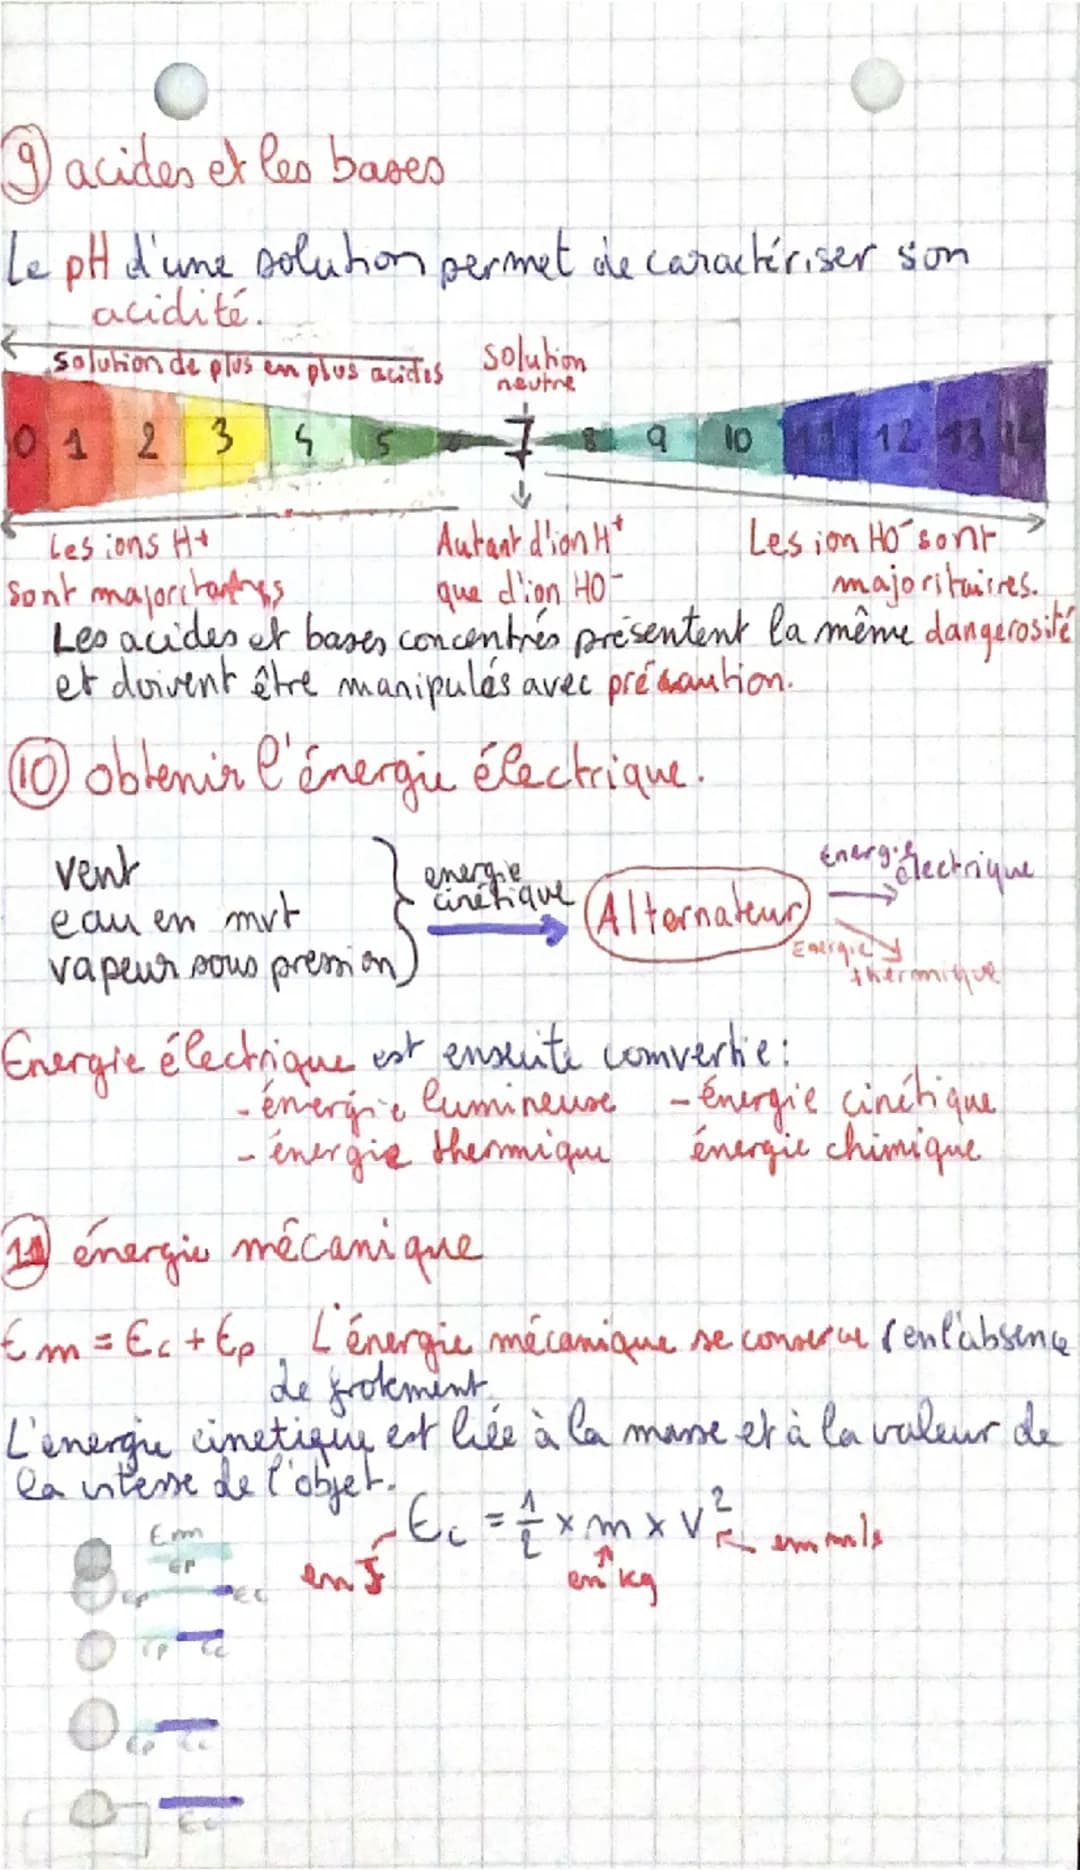 9) acides et les bases
Le pH d'une solution permet de caractériser son
acidité.
solution de plus en plus acides
solution
neutre
0 1 2 3 4 5 6 7 8 9 10 11 12 13 14
Les ions H+
sont majoritaires
Autant d'ion H+
que d'ion HO-
Les ion HO- sont
majoritaires.
Les acides et bases concentrés présentent la même dangerosité
et doivent être manipulés avec précaution.
10) obtenir l'énergie électrique.
vent
eau en mvt
vapeur sous pression
energie
cinétique
Alternateur
Energie
électrique
Energie
thermique
Energie électrique est ensuite convertie :
- énergie lumineuse - énergie cinétique
- énergie thermique énergie chimique
11) énergie mécanique
Em = Ec + Ep L'énergie mécanique se conserve (en l'absence
de frotement
L'énergie cinetique est liée à la masse et à la valeur de
la vitesse de l'objet.
Ec = 1/2 x m x v²
en J
en kg
en m/s
Em
EP
Ep Ec
Ep Ec
Ep Ec
Ec